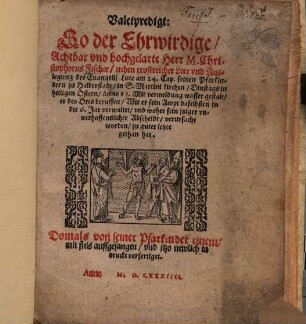 Valetpredigt:
So der Ehrwirdige/
Achtbar vnd hochgelarte Herr M. Chri-
stophorus Fischer/ neben trostreicher Lere vnd Aus-
legung des Euangelij Luce am 24. Cap. seinen Pfarkin-
dern zu Halberstadt/ in S. Mertins kirchen/ Dinstags in
heiligen Ostern/ Anno 83. Mit vermeldung wasser gestalt/
er des Orts beruffen/ Wie er sein Ampt daselbsten in
die 6. Jar verwaltet/ vnd woher sein jtziger vn-
uerhoffentlicher Abscheidt/ verursacht
worden/ zu guter letzte
gethan hat.
Domals von seiner Pfarkinder einem/
mit fleis auffgefangen/ vnd jtzo newlich in
druck verfertiget.
Anno M. D. LXXXIIII.